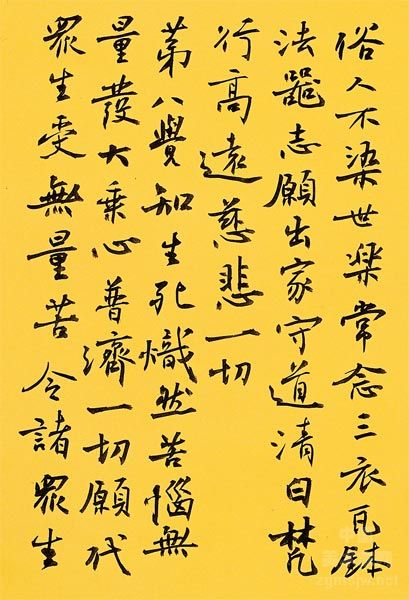 俗人不染世樂常念三衣瓦鉢
法器志願出家守道清白梵
行高遠慈悲一切
第八覺知生死熾然苦惱無
量發大乘心普濟一切願代
眾生受無量苦令諸眾生